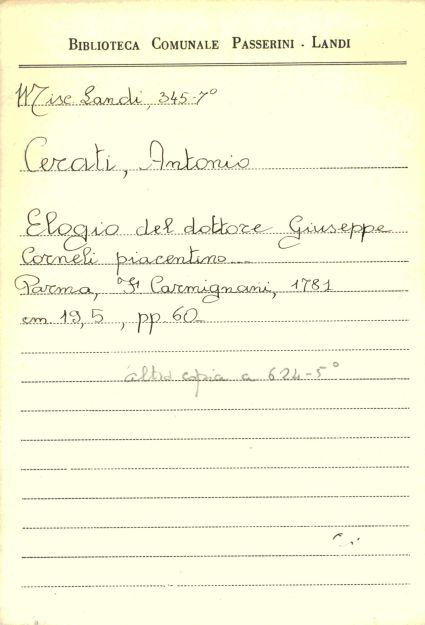 BIBLIOTECA COMUNALE PASSERINI - LANDI
Misc. Landi, 345-7°
Cerati, Antonio
Elogio del dottore Giuseppe
Corneli piacentino
Parma, Carmignani, 1781
cm. 19,5, pp. 60
altra copia a 624-5°